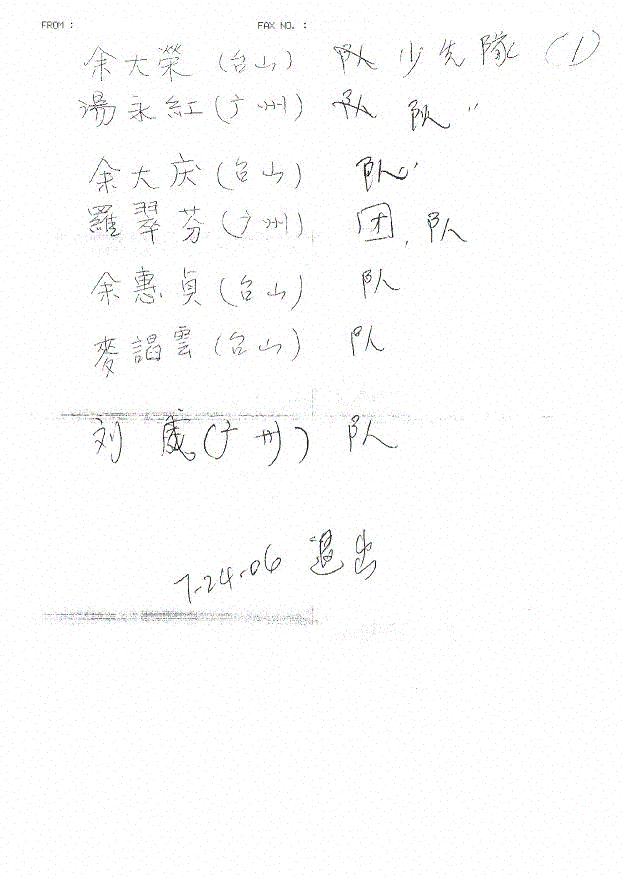 FROM : FAX NO. :
余大榮 (台山) 队 少先隊 (1)
湯永紅 (广州) 队 队 "
余大庆 (台山) 队 "
羅翠芬 (广州) 团, 队
余惠貞 (台山) 队
麥謁雲 (台山) 队
刘 (广州) 队
7-24-06 退出